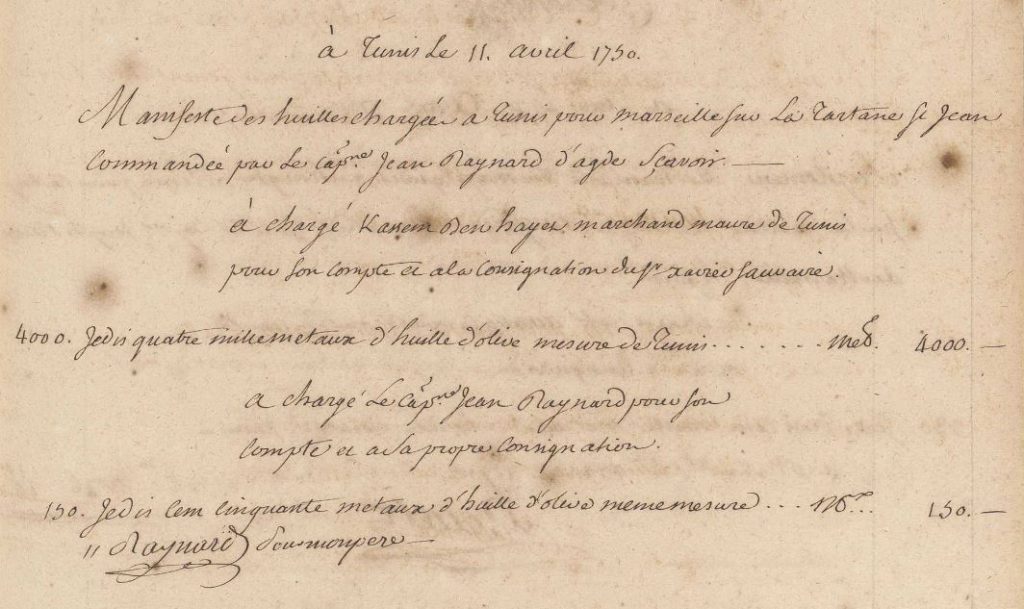 à Tunis Le 11. avril 1750.
Manifeste des huilles chargéé a Tunis pour marseille sur La Tartane st Jean
Commandéé par Le Capne Jean Raynard d'agde Sçavoir. —
à chargé Kassem Ben hayet marchand maure de Tunis
pour Son Compte et a la Consignation du Sr xavier Sauvaire.
4000. Je dis quatre mille metaux d'huille d'olive mesure de Tunis . . . . . . . 4000. —
a chargé Le Capne Jean Raynard pour Son
Compte et a Sa propre Consignation.
150. Je dis Cent Cinquante metaux d'huille d'olive meme mesure . . . 150. —
" Raynard pour mon pere —